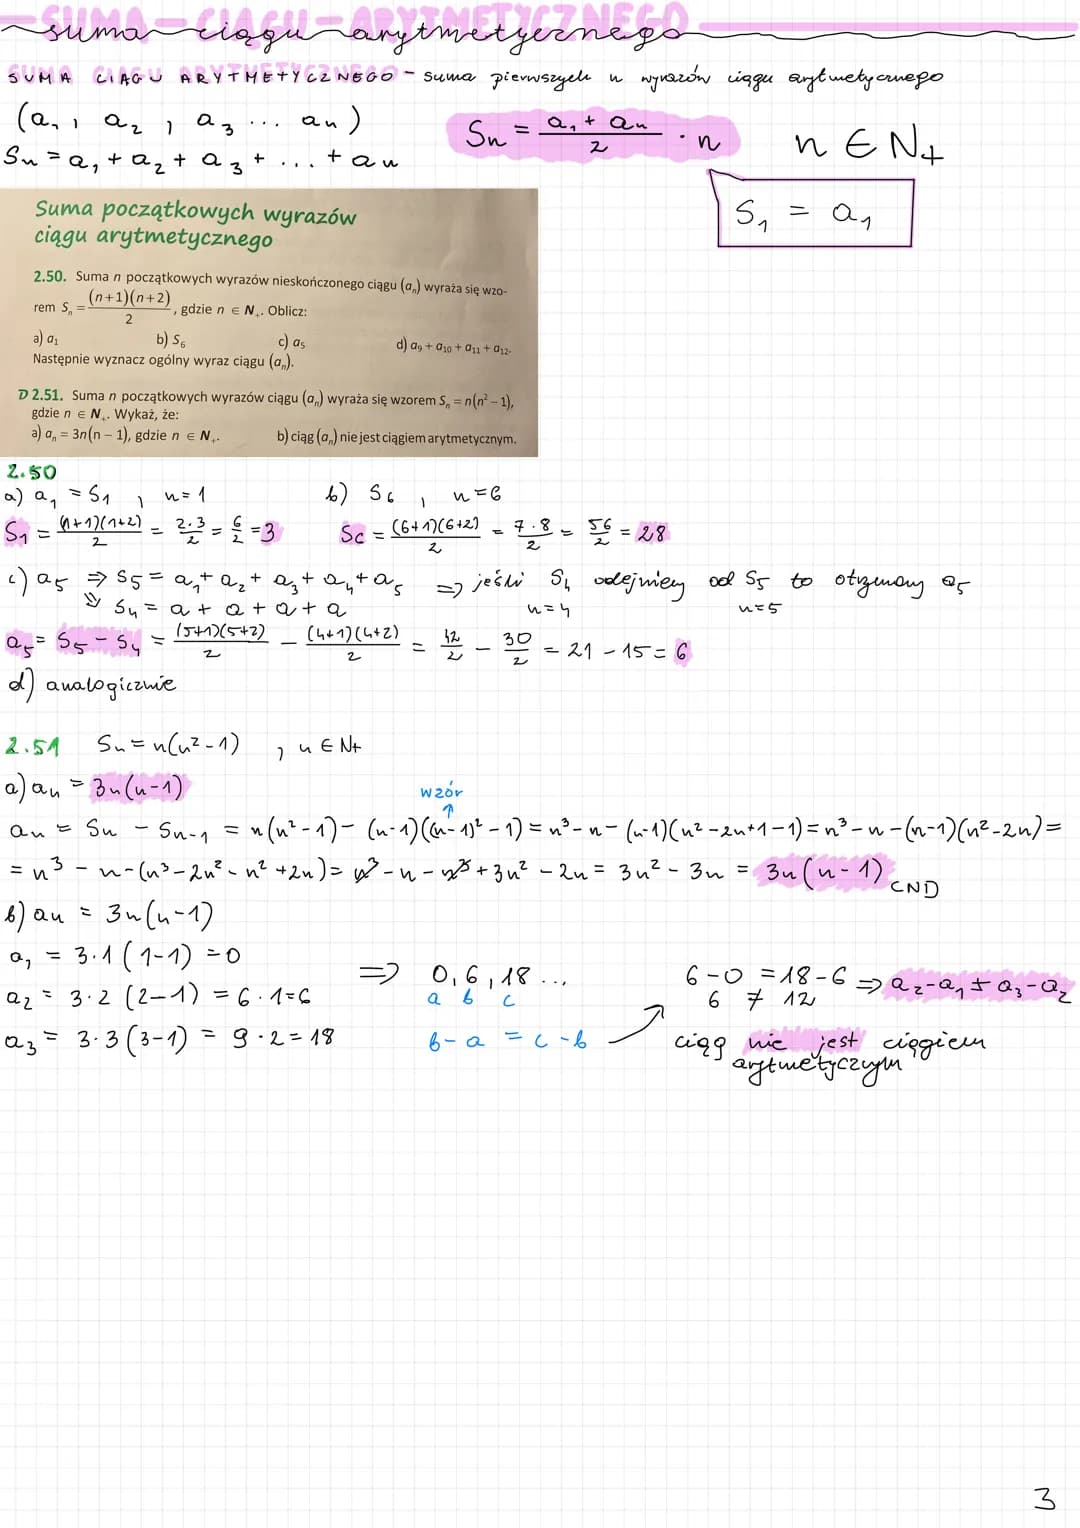 SUMA CIĄGU ARYTMETYCZNEGO
suma ciągu arytmetycznego
SUMA CIĄGU ARYTMETYCZNEGO - suma pierwszych n wyrazów ciągu arytmetycznego
(a₁, a₂, a₃ ... aₙ)
Sₙ = a₁ + a₂ + a₃ + ... + aₙ
Sₙ = (a₁ + aₙ)/2 · n
n ∈ N₊
S₁ = a₁
Suma początkowych wyrazów
ciągu arytmetycznego
2.50. Suma n początkowych wyrazów nieskończonego ciągu (aₙ) wyraża się wzo-
rem Sₙ = (n+1)(n+2)/2, gdzie n ∈ N₊. Oblicz:
a) a₁ b) S₆ c) a₅ d) a₉ + a₁₀ + a₁₁ + a₁₂.
Następnie wyznacz ogólny wyraz ciągu (aₙ).
D 2.51. Suma n początkowych wyrazów ciągu (aₙ) wyraża się wzorem Sₙ = n(n² – 1),
gdzie n ∈ N₊. Wykaż, że:
a) aₙ = 3n(n – 1), gdzie n ∈ N₊. b) ciąg (aₙ) nie jest ciągiem arytmetycznym.
2.50
a) a₁ = S₁ , n = 1 b) S₆ , n = 6
S₁ = (1+1)(1+2)/2 = 2·3/2 = 6/2 = 3 S₆ = (6+1)(6+2)/2 = 7·8/2 = 56/2 = 28
c) a₅ ⇒ S₅ = a₁ + a₂ + a₃ + a₄ + a₅ ⇒ jeśli S₄ odejmiemy od S₅ to otrzymamy a₅
⇓ S₄ = a + a + a + a n=4 n=5
a₅ = S₅ - S₄ = (5+1)(5+2)/2 - (4+1)(4+2)/2 = 42/2 - 30/2 = 21 - 15 = 6
d) analogicznie
2.51 Sₙ = n(n² - 1) , n ∈ N₊
a) aₙ = 3n(n-1)
wzór
↑
aₙ = Sₙ - Sₙ₋₁ = n(n² - 1) - (n-1)((n-1)² - 1) = n³ - n - (n-1)(n² - 2n + 1 - 1) = n³ - n - (n-1)(n² - 2n) =
= n³ - n - (n³ - 2n² - n² + 2n) = n³ - n - n³ + 3n² - 2n = 3n² - 3n = 3n(n-1) CND
b) aₙ = 3n(n-1)
a₁ = 3·1(1-1) = 0
a₂ = 3·2(2-1) = 6·1 = 6
a₃ = 3·3(3-1) = 9·2 = 18
⇒ 0, 6, 18 ...
a b c
b - a = c - b
6 - 0 = 18 - 6 ⇒ a₂ - a₁ ≠ a₃ - a₂
6 ≠ 12
ciąg nie jest ciągiem
arytmetycznym
3